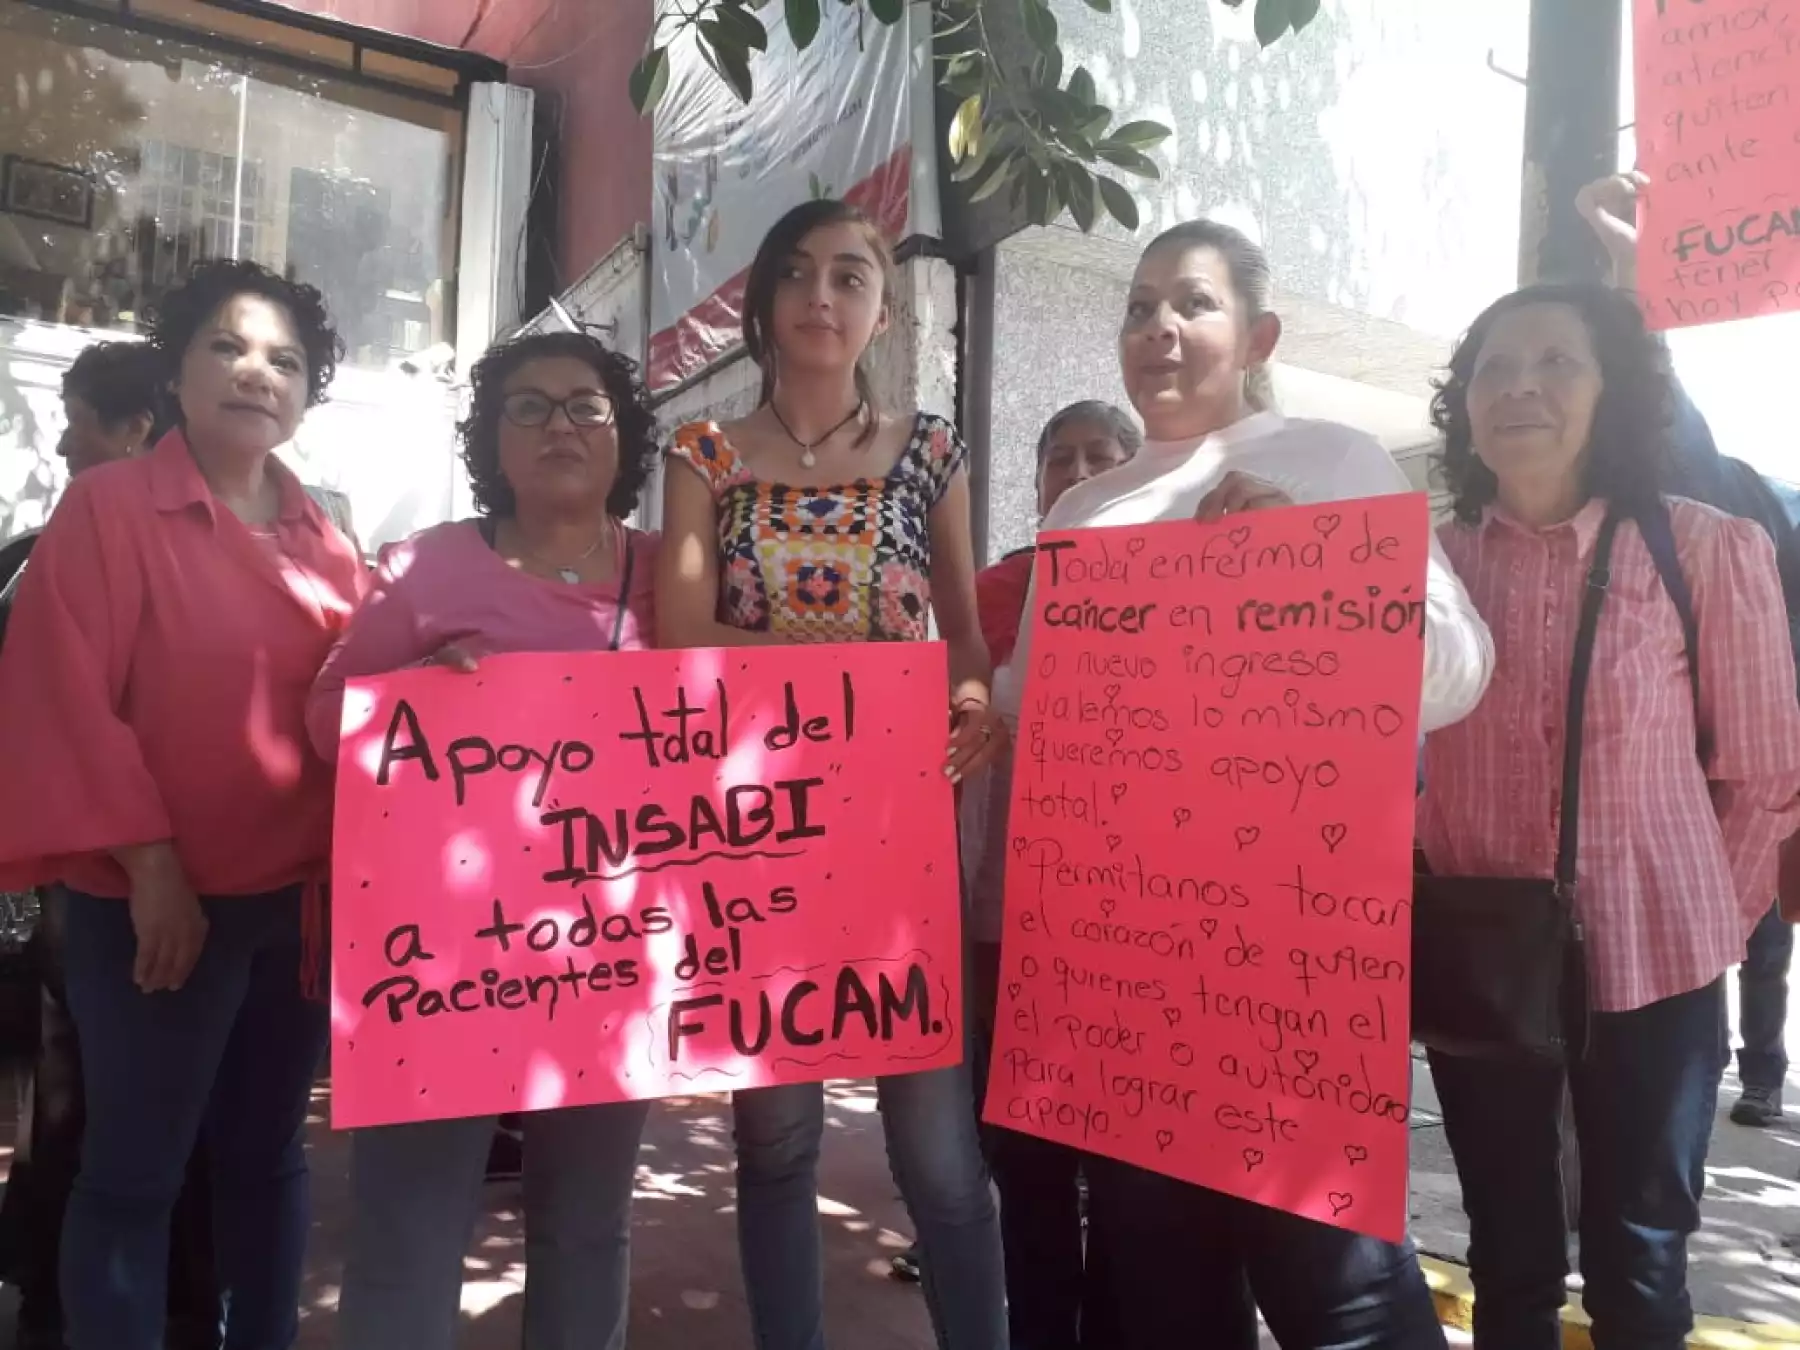 Apoyo total del
"INSABI"
a todas las
Pacientes del
FUCAM.
Toda enferma de
cáncer en remisión
o nuevo ingreso
valemos lo mismo
queremos apoyo
total.
Permitanos tocar
el corazón de quien
o quienes tengan el
el poder o autóridad
para lograr este
apoyo.
amor,
atenci
quiten
ante
FUCAM
tener
hoy